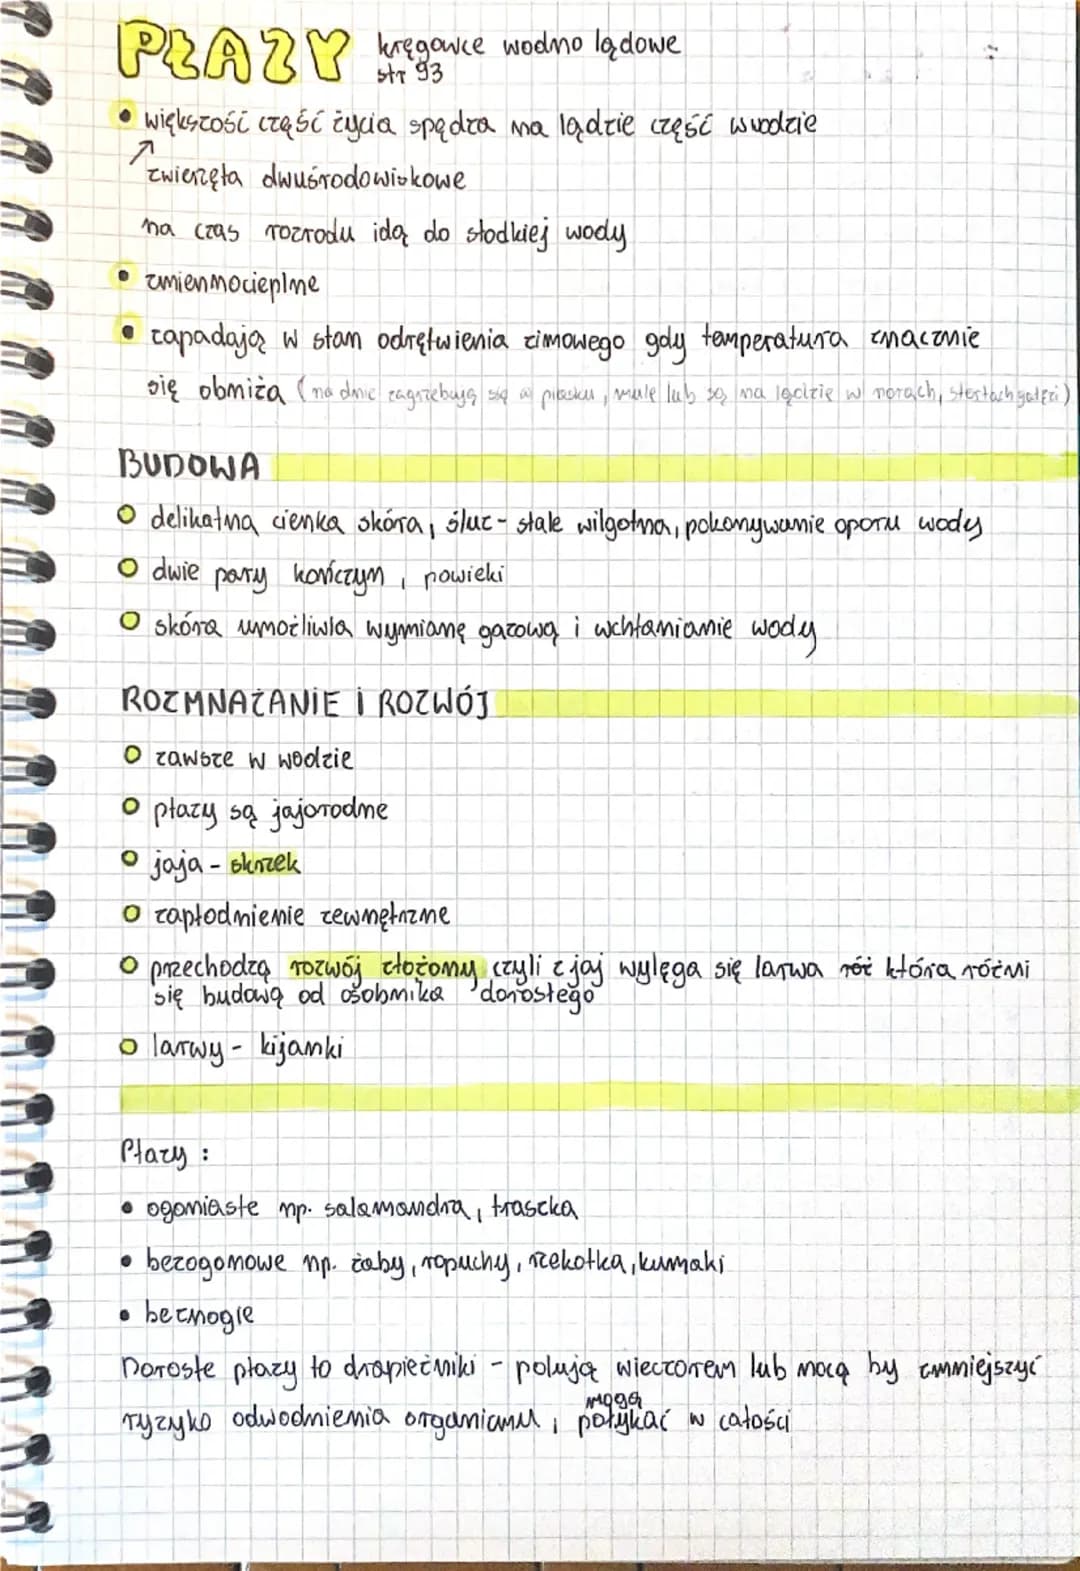 PŁAZY kręgowce wodno lądowe
str 93
• większość część życia spędza na lądzie część w wodzie
zwierzęta dwuśrodowiskowe
na czas rozrodu idą do słodkiej wody
• zmiennocieplne
• zapadają w stan odrętwienia zimowego gdy temperatura znacznie
się obniża (na dnie zagrzebują się w piasku, mule lub są na lądzie w norach, stertach gałęzi)
BUDOWA
○ delikatna cienka skóra, śluz - stale wilgotna, pokonywanie oporu wody
○ dwie pary kończyn, powieki
○ skóra umożliwia wymianę gazową i wchłanianie wody
ROZMNAŻANIE I ROZWÓJ
○ zawsze w wodzie
○ płazy są jajorodne
○ jaja - skrzek
○ zapłodnienie zewnętrzne
○ przechodzą rozwój złożony czyli z jaj wylęga się larwa róż która różni
się budową od osobnika dorosłego
○ larwy - kijanki
Płazy :
• ogoniaste np. salamandra, traszka
• bezogonowe np. żaby, ropuchy, rzekotka, kumaki
• beznogie
Dorosłe płazy to drapieżniki - polują wieczorem lub nocą by zmniejszyć
mogą
ryzyko odwodnienia organizmu, połykać w całości